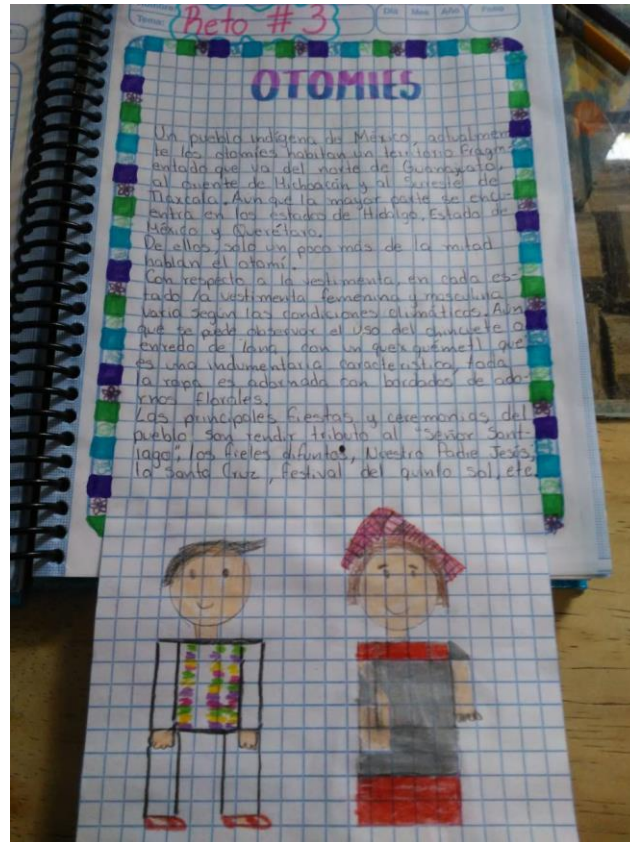 Tema:
Reto # 3
Día Mes Año Folio
OTOMIES
Un pueblo indígena de México, actualmen
te los otomíes habitan un territorio fragm-
entado que va del norte de Guanajuato,
al oriente de Michoacán y al sureste de
Tlaxcala. Aun que la mayor parte se encu-
entra en los estados de Hidalgo, Estado de
México y Querétaro.
De ellos solo un poco más de la mitad
hablan el otomí.
Con respecto a la vestimenta, en cada es-
tado la vestimenta femenina y masculina
varia según las condiciones climáticas. Aún
que se puede observar el uso del chincuete o
enredo de lana con un quexquémetl que
es una indumentaria característica, toda
la ropa es adornada con bordados de ado-
rnos florales.
Las principales fiestas y ceremonias del
pueblo son rendir tributo al "señor Sant-
iago", los fieles difuntos, Nuestro Padre Jesús,
la Santa Cruz, festival del quinto sol, ete